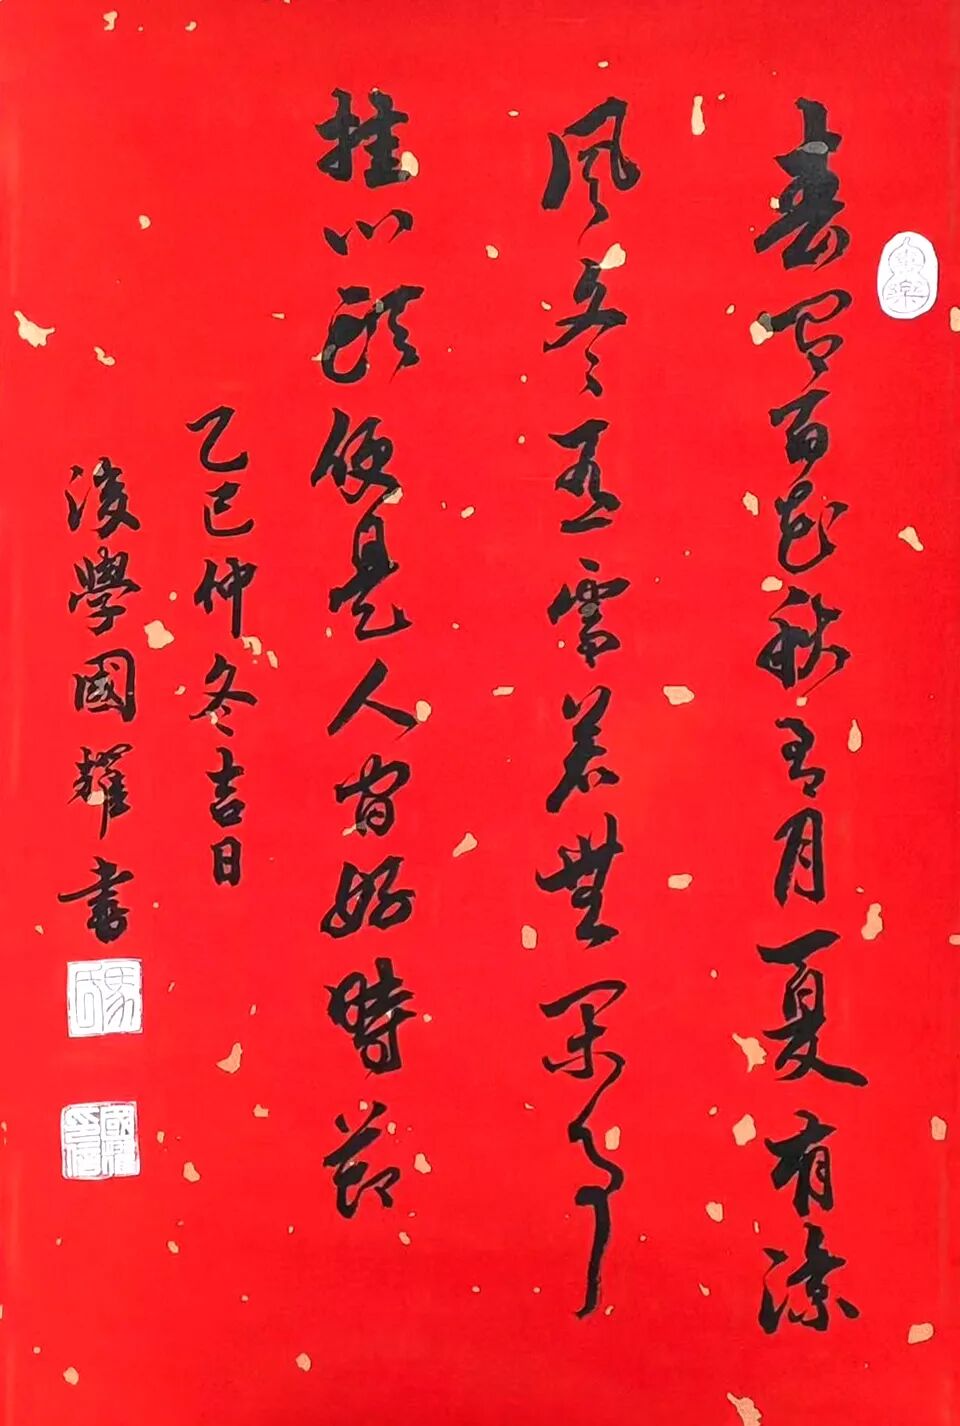 春有百花秋有月夏有涼
風冬有雪若無閑事
挂心頭便是人間好時節
乙巳仲冬吉日
後學國耀書
國耀印信